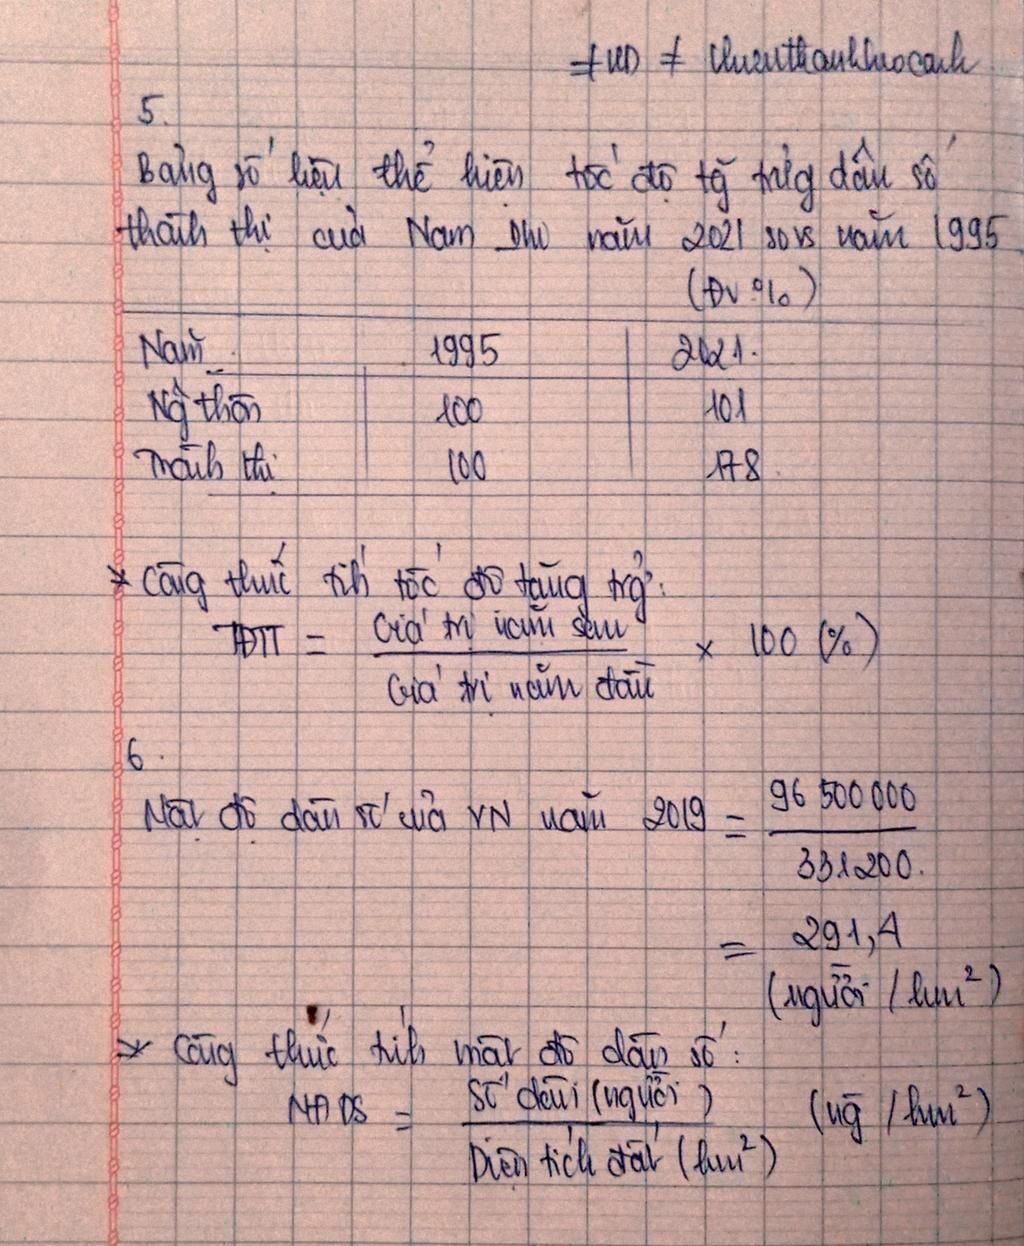 5.
Bảng số liệu thể hiện tốc độ tg trưg dân số
thành thị của Nam Phi năm 2021 so vs năm 1995
(Đv %)
Năm 1995 2021.
Ng thôn 100 101
Thành thị 100 178
* Công thức tíh tốc độ tăng trg:
TĐTT = Giá trị năm sau / Giá trị năm đầu × 100 (%)
6.
Mật độ dân số của VN năm 2019 = 96 500 000 / 331200.
= 291,4
(người / km²)
* Công thức tíh mật độ dân số:
MĐDS = Số dân (người) / Diện tích đất (km²) (ng / km²)